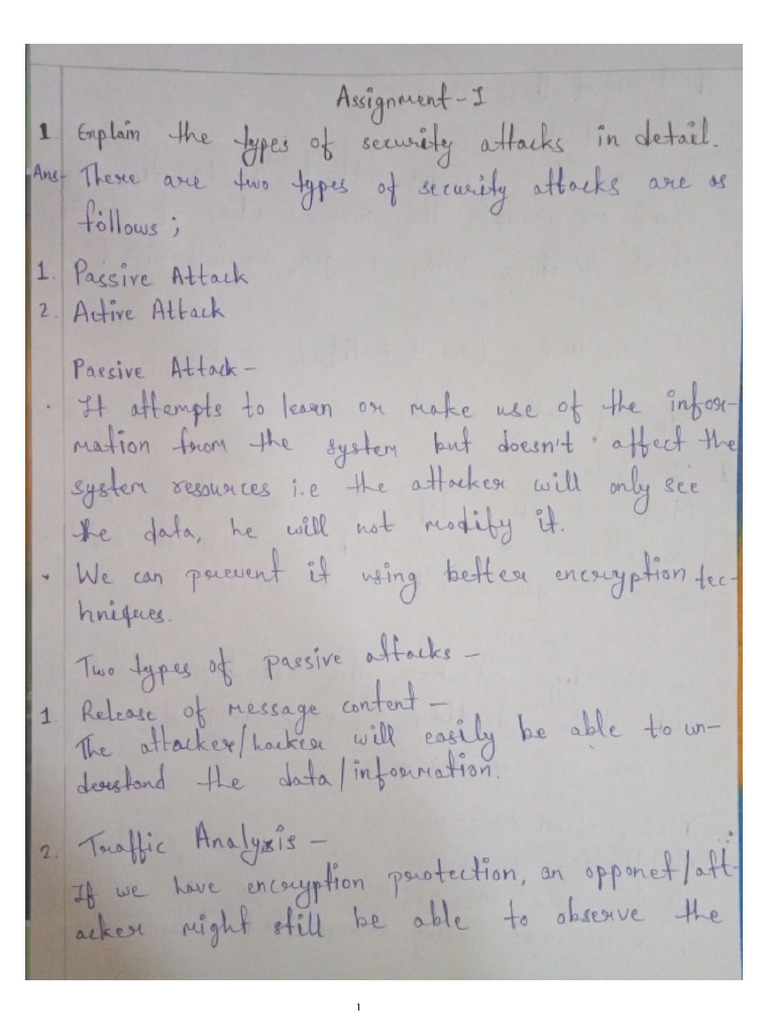 Assignment-I
1. Explain the types of security attacks in detail.
Ans- There are two types of security attacks are as
follows;
1. Passive Attack
2. Active Attack
Passive Attack -
· It attempts to learn or make use of the infor-
mation from the system but doesn't affect the
system resources i.e the attacker will only see
the data, he will not modify it.
· We can prevent it using better encryption tec-
hniques.
Two types of passive attacks -
1 Release of message content -
The attacker/hacker will easily be able to un-
derstand the data/information.
2. Traffic Analysis -
If we have encryption protection, an opponet/att-
acker might still be able to observe the
1